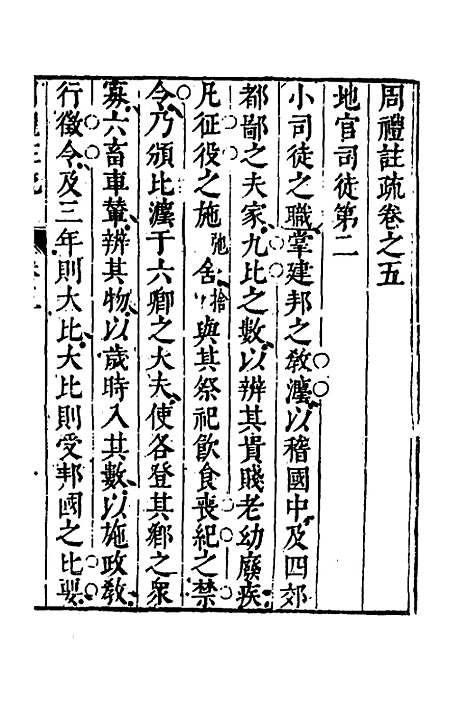 周禮註疏卷之五
地官司徒第二
小司徒之職掌建邦之敎灋以稽國中及四郊
都鄙之夫家九比之數以辨其貴賤老幼廢疾
凡征役之施弛舍捨與其祭祀飮食喪紀之禁
令乃頒比灋于六鄉之大夫使各登其鄉之衆
寡六畜車輦辨其物以歲時入其數以施政敎
行徵令及三年則大比大比則受邦國之比要